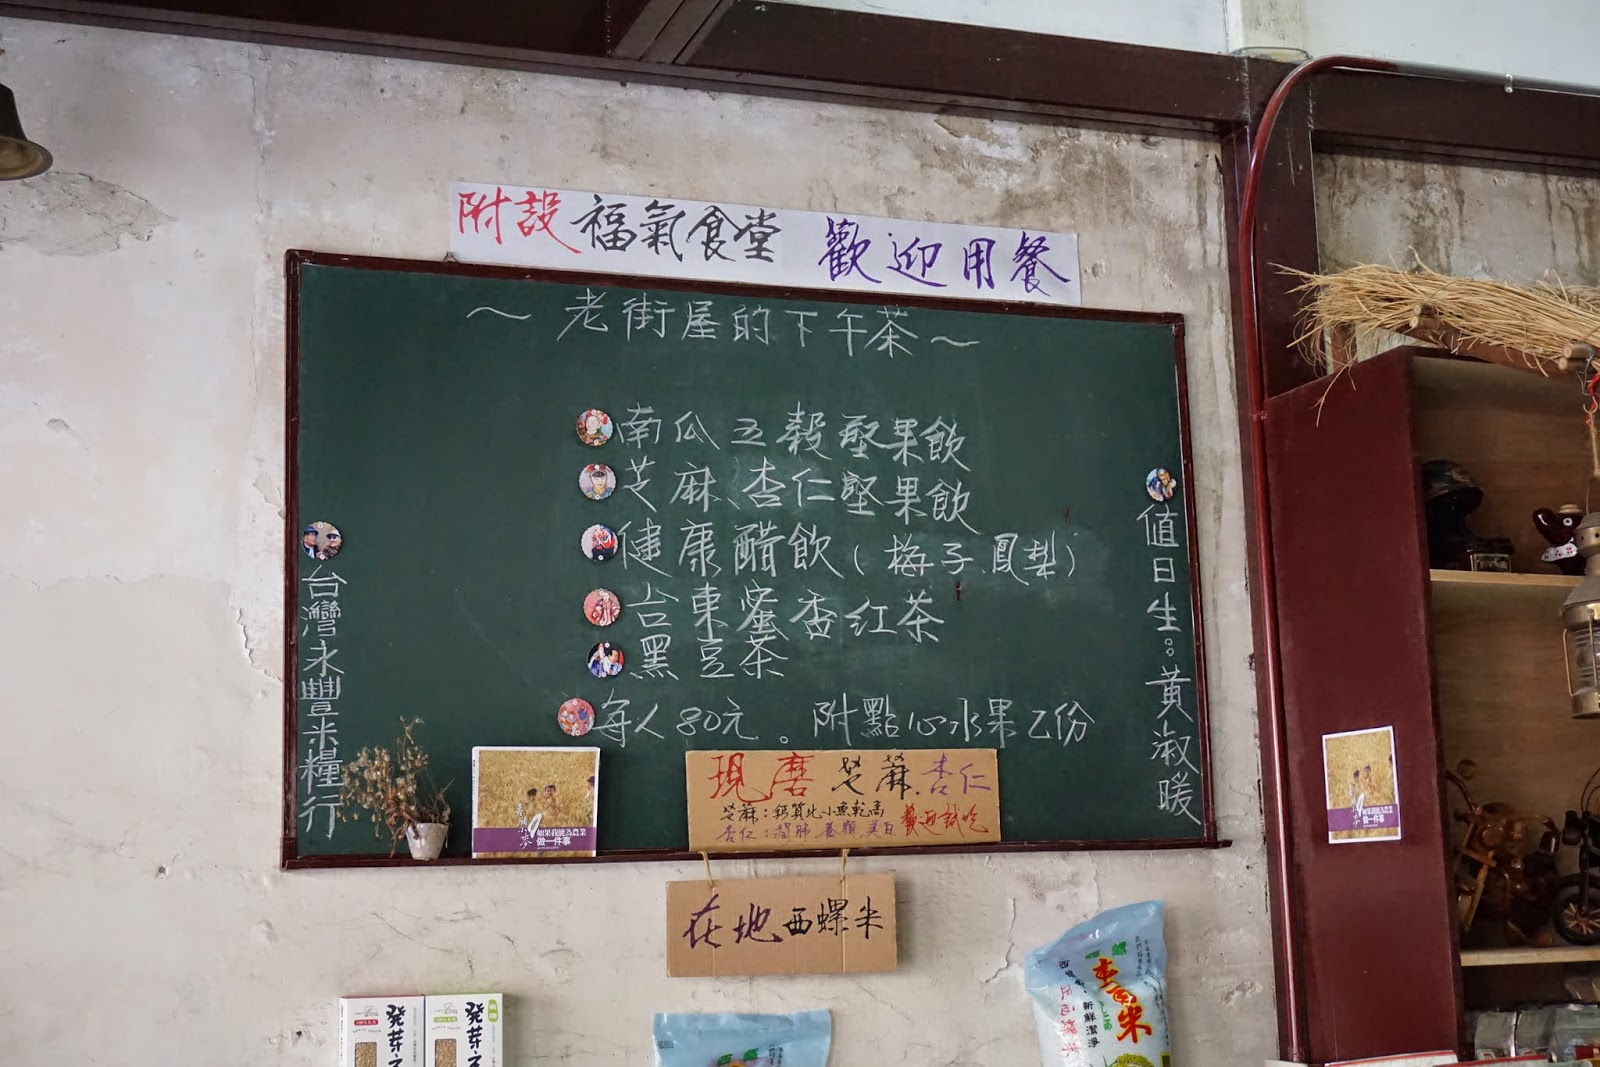 附設福氣食堂 歡迎用餐
～老街屋的下午茶～
南瓜五穀堅果飲
芝麻、杏仁堅果飲
健康醋飲(梅子.鳳梨)
台東蜜香紅茶
黑豆茶
每人80元。附點心水果乙份
台灣永豐米糧行
值日生：黃淑暖
現磨芝麻.杏仁
芝麻：鈣質比小魚乾高
杏仁：潤肺 養顏 美白
歡迎試吃
喜願小麥
如果我能為農業
做一件事
在地西螺米
如果我能為農業
做一件事
發芽
發芽
新鮮潔淨